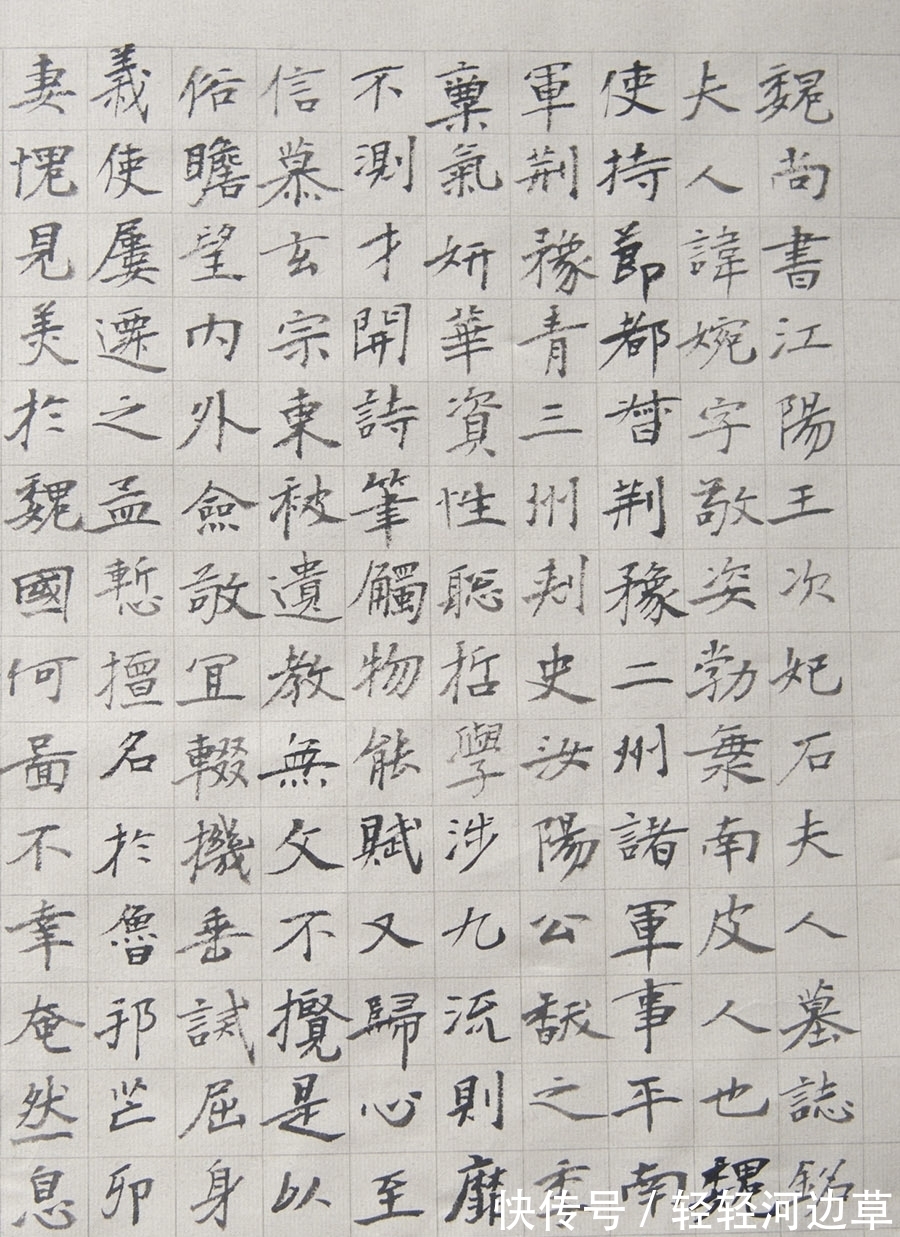 魏尚書江陽王次妃石夫人墓誌銘
夫人諱婉字敬姿勃棄南皮人也魏
使持節都督荆豫二州諸軍事平南
軍荆豫青三州刾史汝陽公馛之季
稟氣妍華資性聡哲學涉九流則靡
不測才開詩筆觸物能賦又歸心至
信慕玄宗東被遺教無文不攬是以
俗瞻望內外僉敬宜輟機垂誡屈身
義使屢遷之孟慙擅名於魯邦芒卯
妻愧見美於魏國何啚不幸奄然一息
快传号/轻轻河边草